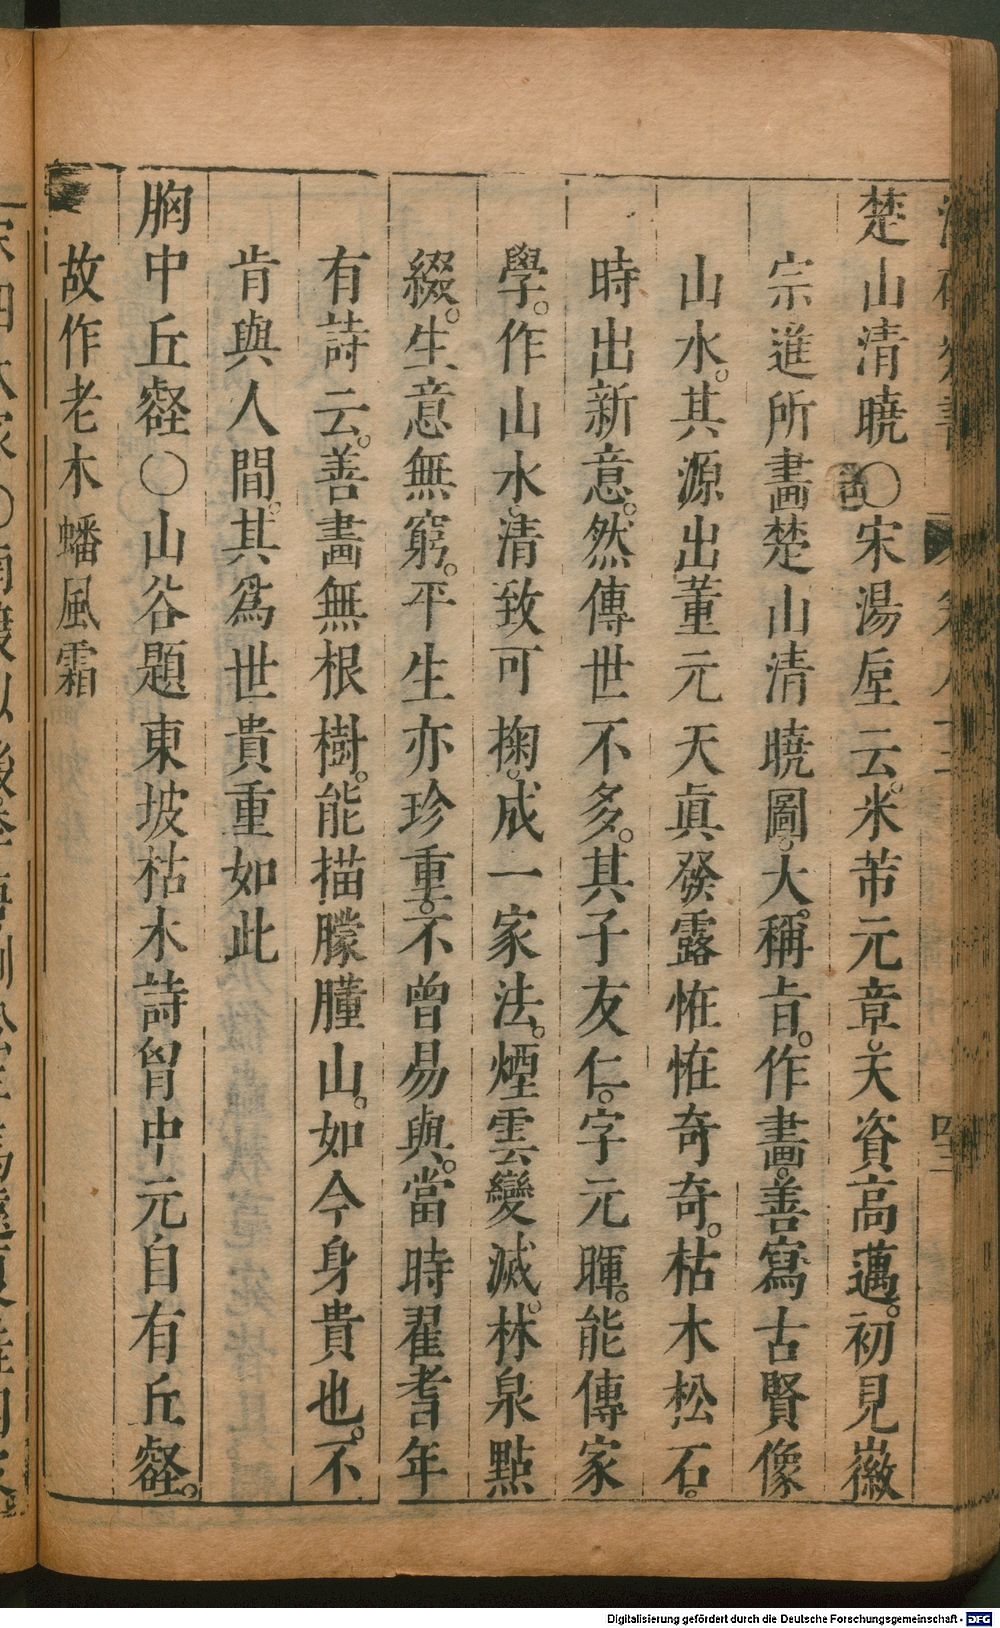 楚山清曉〇宋湯垕云。米芾元章。天資高邁。初見徽
宗進所畫楚山清曉圖。大稱旨。作畫。善寫古賢像
山水。其源出董元天眞發露恠恠奇奇。枯木松石。
時出新意。然傳世不多。其子友仁。字元暉。能傳家
學。作山水。清致可掬。成一家法。煙雲變滅。林泉點
綴。生意無窮。平生亦珍重。不曾易與。當時翟耆年
有詩云。善畫無根樹。能描朦朣山。如今身貴也。不
肯與人間。其爲世貴重如此
胸中丘壑〇山谷題東坡枯木詩胷中元自有丘壑。
故作老木蟠風霜
Digitalisierung gefördert durch die Deutsche Forschungsgemeinschaft - DFG